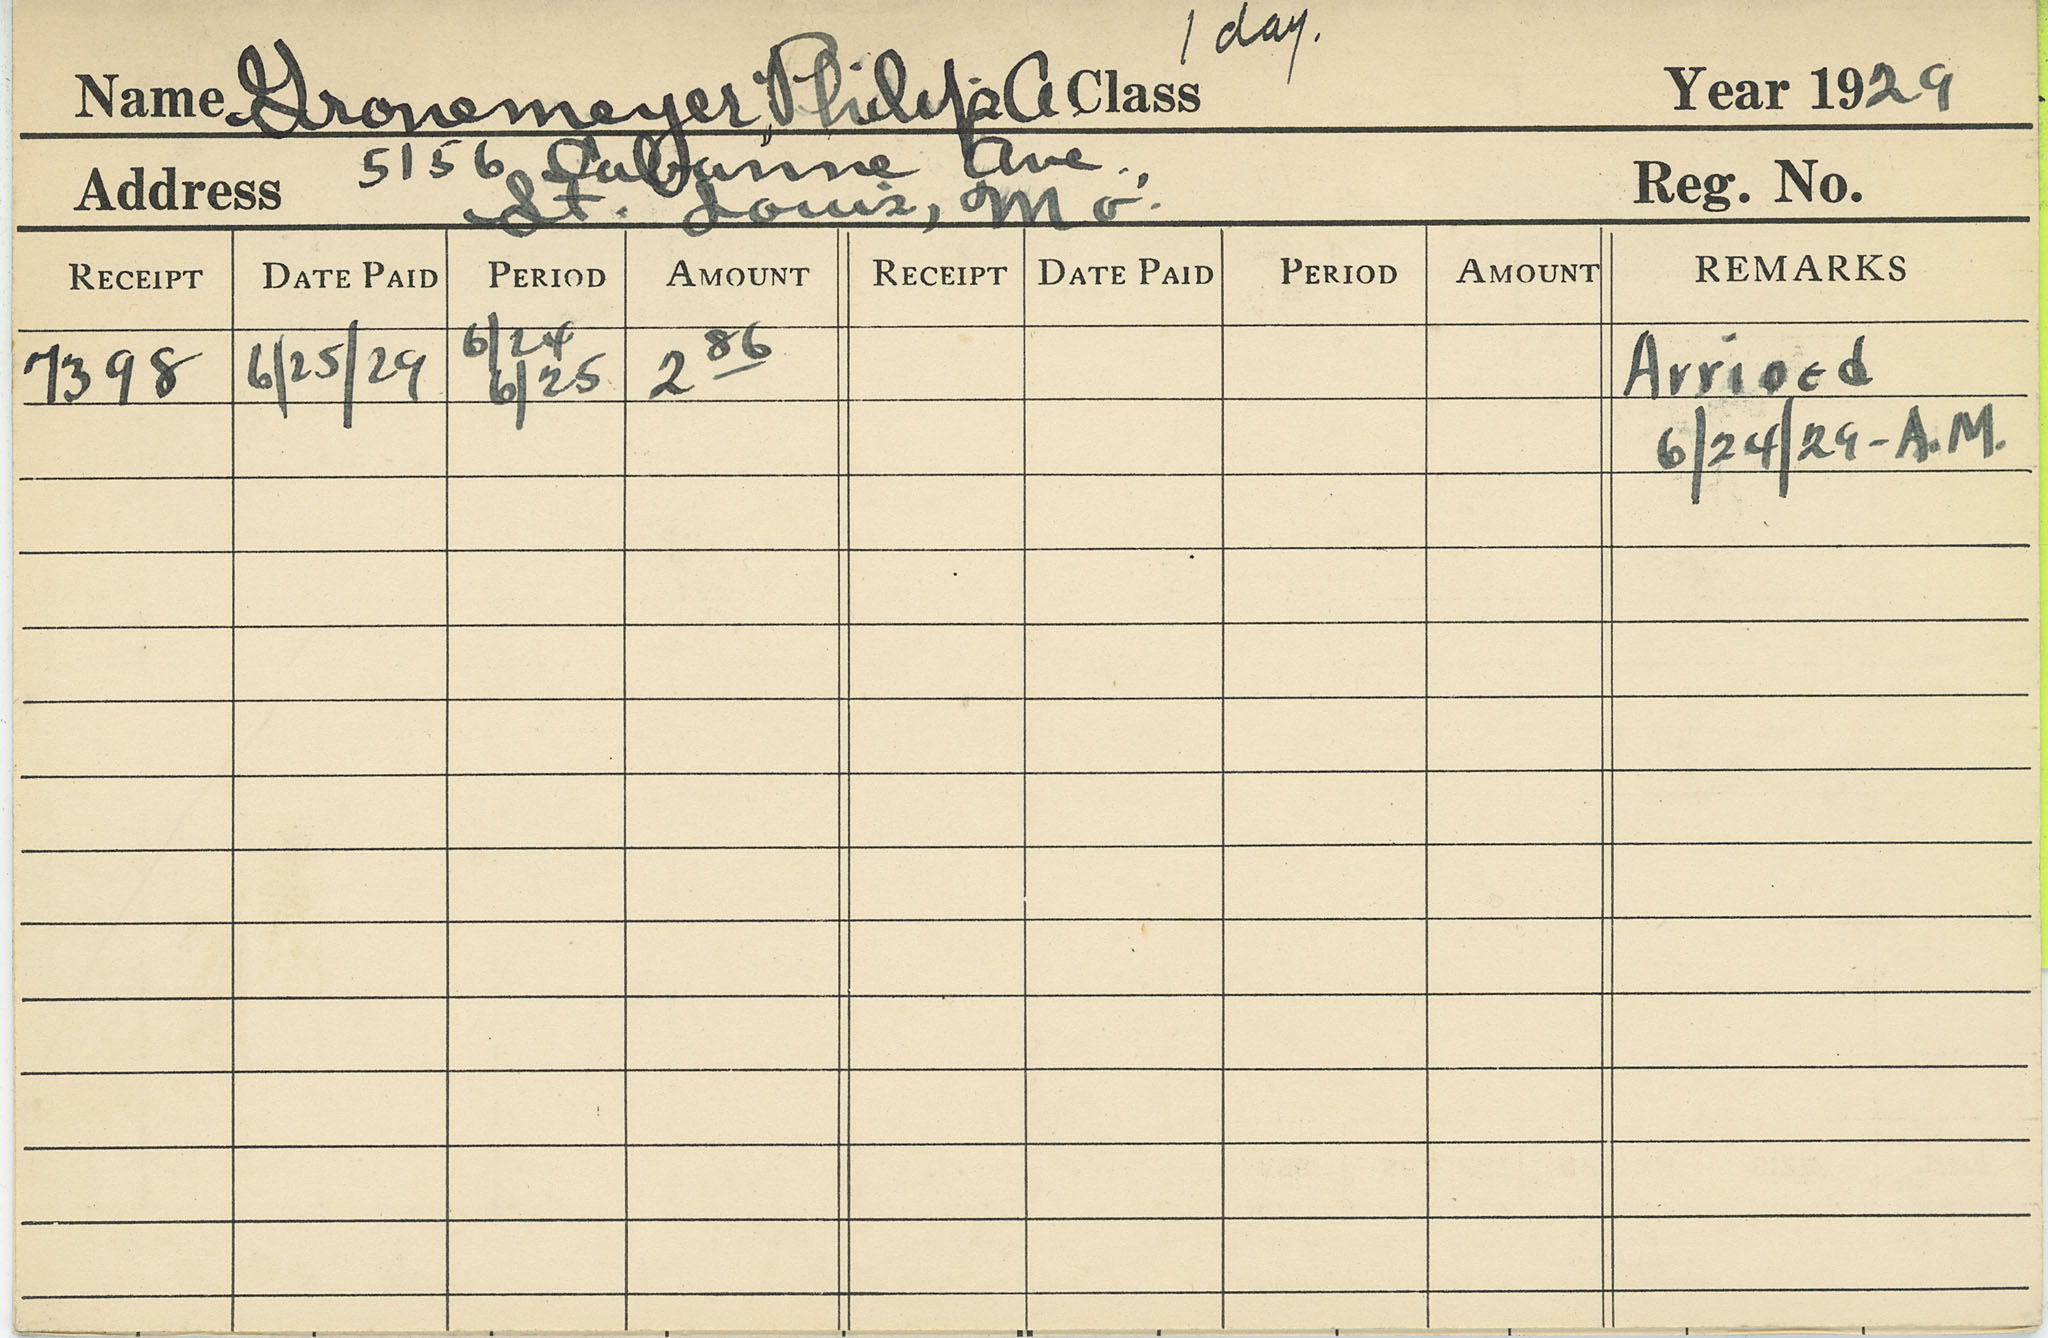 1 day.
Name Gronemeyer, Philip A. Class Year 1929
Address 5156 Cabanne Ave., Reg. No.
St. Louis, Mo.
RECEIPT DATE PAID PERIOD AMOUNT RECEIPT DATE PAID PERIOD AMOUNT REMARKS
7398 6/25/29 6/24 2 86 Arrived
6/25
6/24/29 - A.M.